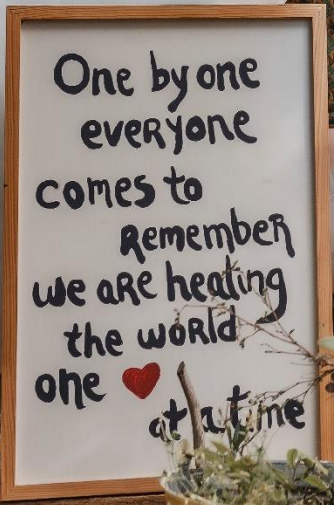 One by one
everyone
comes to
Remember
we are healing
the world
one ❤
at a time